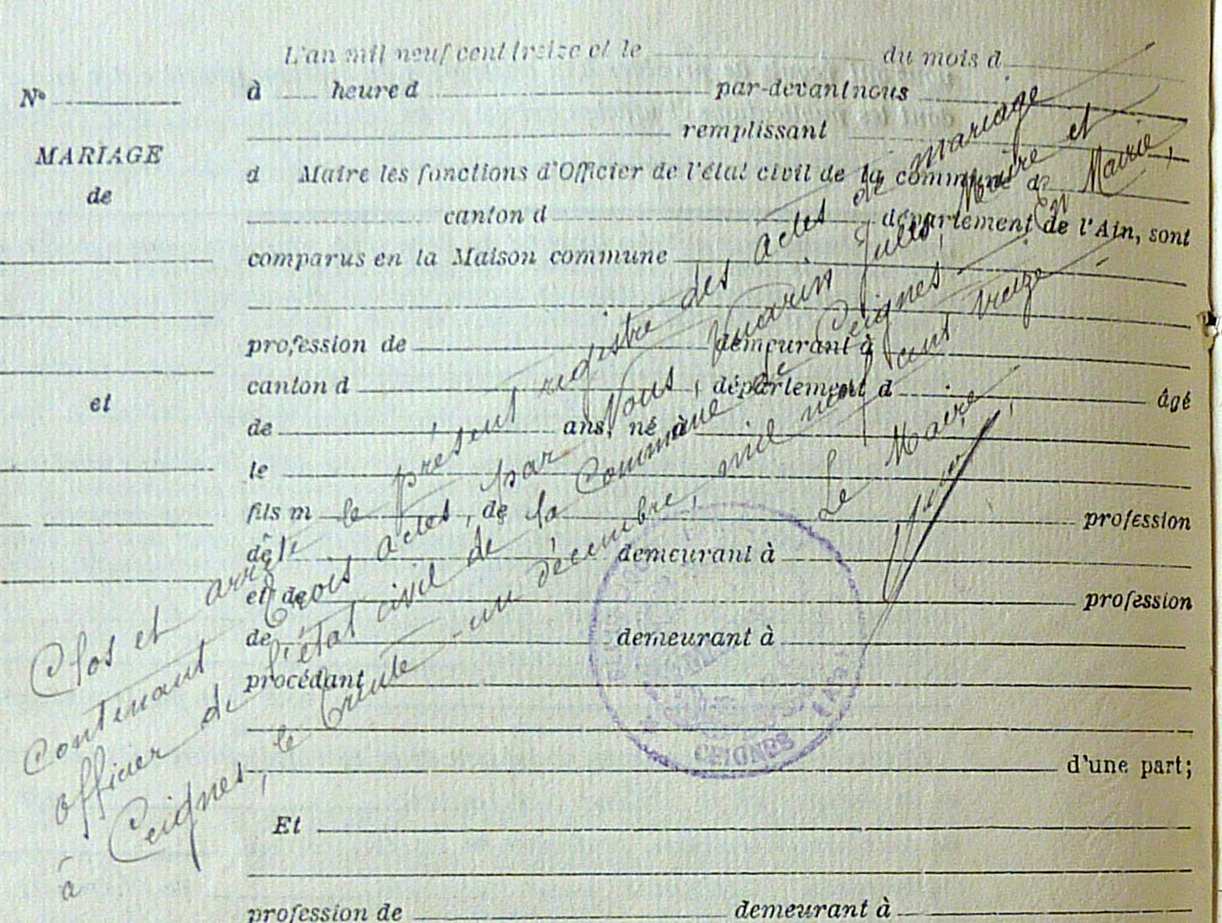 L'an mil neuf cent treize et le du mois d
N° à heure d par-devant nous
remplissant
MARIAGE
d Maire les fonctions d'Officier de l'état civil de la commune d
de
canton d département de l'Ain, sont
comparus en la Maison commune
profession de demeurant à
canton d , département d âgé
et
de ans, né à
le
fils m , de profession
de demeurant à
et de profession
de demeurant à
procédant
d'une part;
Et
profession de demeurant à
Clos et arrêté le présent registre des actes de mariage
contenant trois actes, par Nous Jules, Maire et
officier de l'état civil de la Commune de Ceignes. En Mairie
à Ceignes, le trente-un décembre, mil neuf cent treize
Le Maire,
CEIGNES